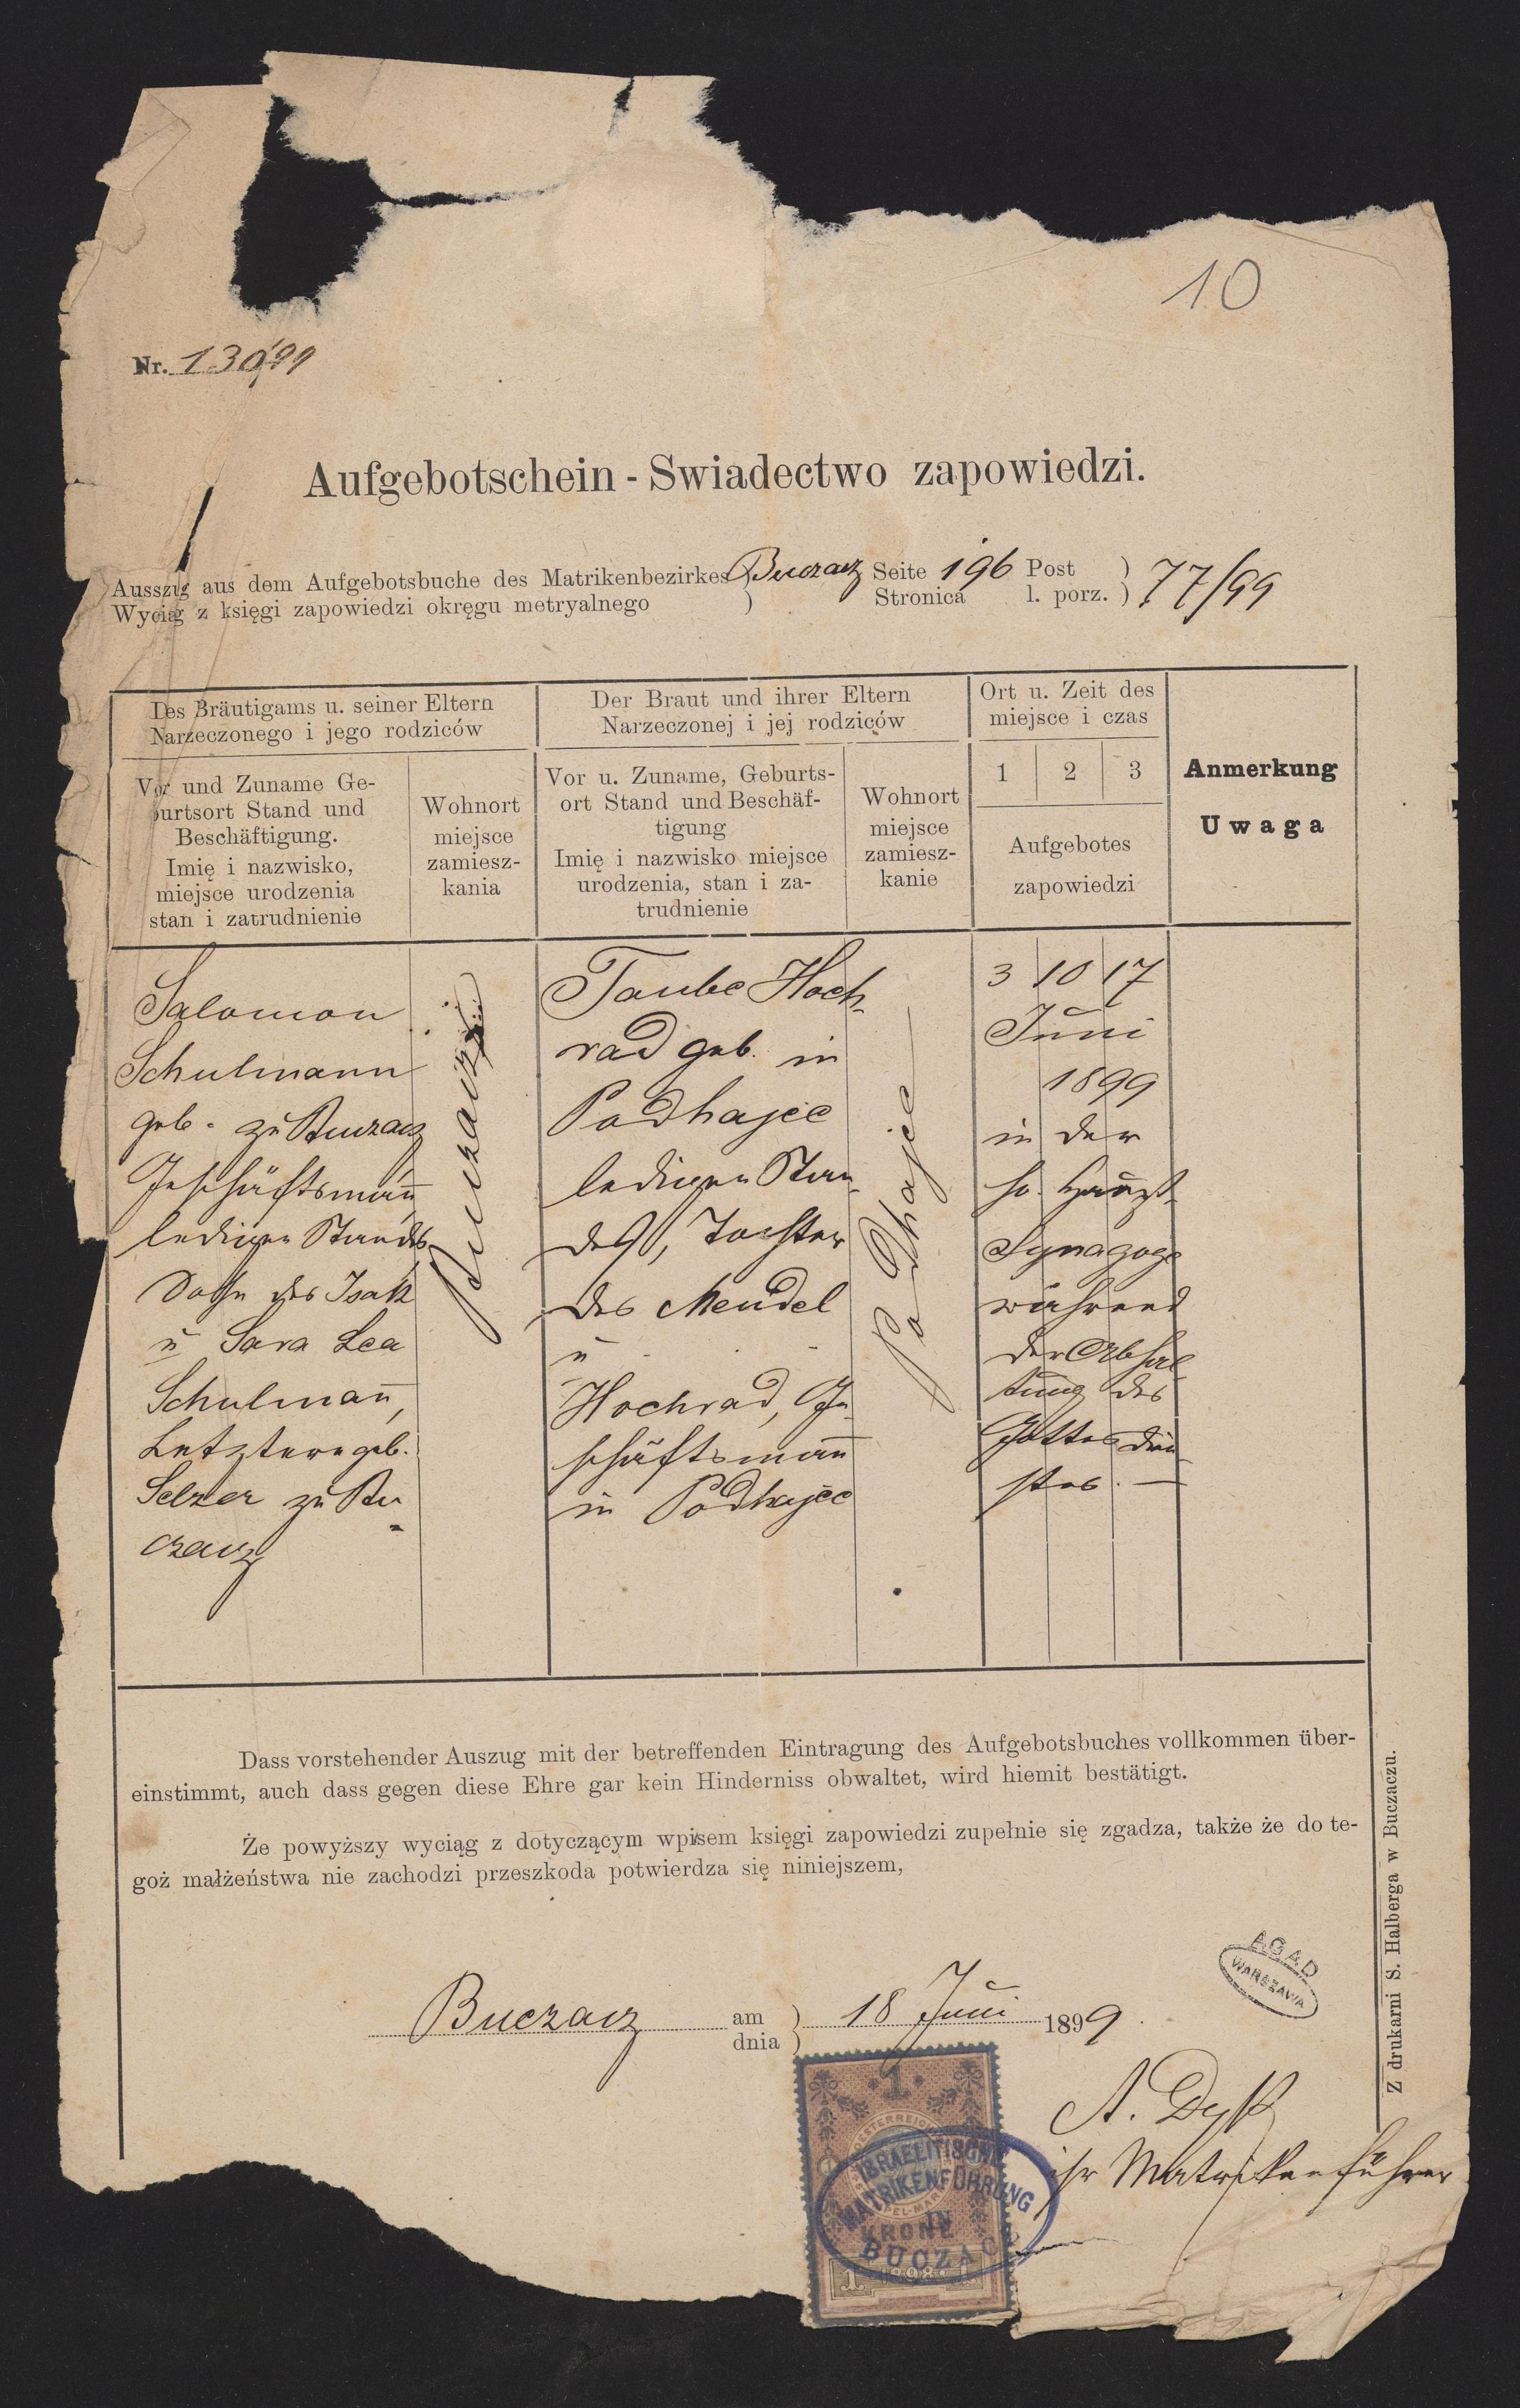 10
Nr. 130/99
Aufgebotschein - Swiadectwo zapowiedzi.
Ausszug aus dem Aufgebotsbuche des Matrikenbezirkes ) Buczacz Seite 196 Post ) 77/99
Wyciąg z księgi zapowiedzi okręgu metryalnego ) Stronica l. porz. )
Des Bräutigams u. seiner Eltern
Narzeczonego i jego rodziców
Der Braut und ihrer Eltern
Narzeczonej i jej rodziców
Ort u. Zeit des
miejsce i czas
Anmerkung
Uwaga
Vor und Zuname Ge-
burtsort Stand und
Beschäftigung.
Imię i nazwisko,
miejsce urodzenia
stan i zatrudnienie
Wohnort
miejsce
zamiesz-
kania
Vor u. Zuname, Geburts-
ort Stand und Beschäf-
tigung
Imię i nazwisko miejsce
urodzenia, stan i za-
trudnienie
Wohnort
miejsce
zamiesz-
kanie
1 2 3
Aufgebotes
zapowiedzi
Salomon
Schulmann
geb. zu Buczacz
Geschäftsmañ
ledigen Standes
Sohn des Isak
u Sara Lea
Schulmañ,
Letztere geb.
Selzer zu Bu-
czacz
Buczacz
Taube Hoch-
rad geb. in
Podhajce
ledigen Stan-
des, Tochter
des Mendel
u
Hochrad, Ge-
schäftsmañ
in Podhajce
Podhajce
3 10 17
Juni
1899
in der
Haupt-
Synagoge
während
der Abhal-
tung des
Gottesdien-
stes. —
Dass vorstehender Auszug mit der betreffenden Eintragung des Aufgebotsbuches vollkommen über-
einstimmt, auch dass gegen diese Ehre gar kein Hinderniss obwaltet, wird hiemit bestätigt.
Że powyższy wyciąg z dotyczącym wpisem księgi zapowiedzi zupełnie się zgadza, także że do te-
goż małżeństwa nie zachodzi przeszkoda potwierdza się niniejszem,
Buczacz am ) 18 Juni 1899
dnia )
AGAD
WARSZAWA
A. Dyk
isr Matrikenführer
1
KRONE
1 1898 1
ISRAELITISCHE
MATRIKENFÜHRUNG
IN
BUCZACZ
Z drukarni S. Halberga w Buczaczu.